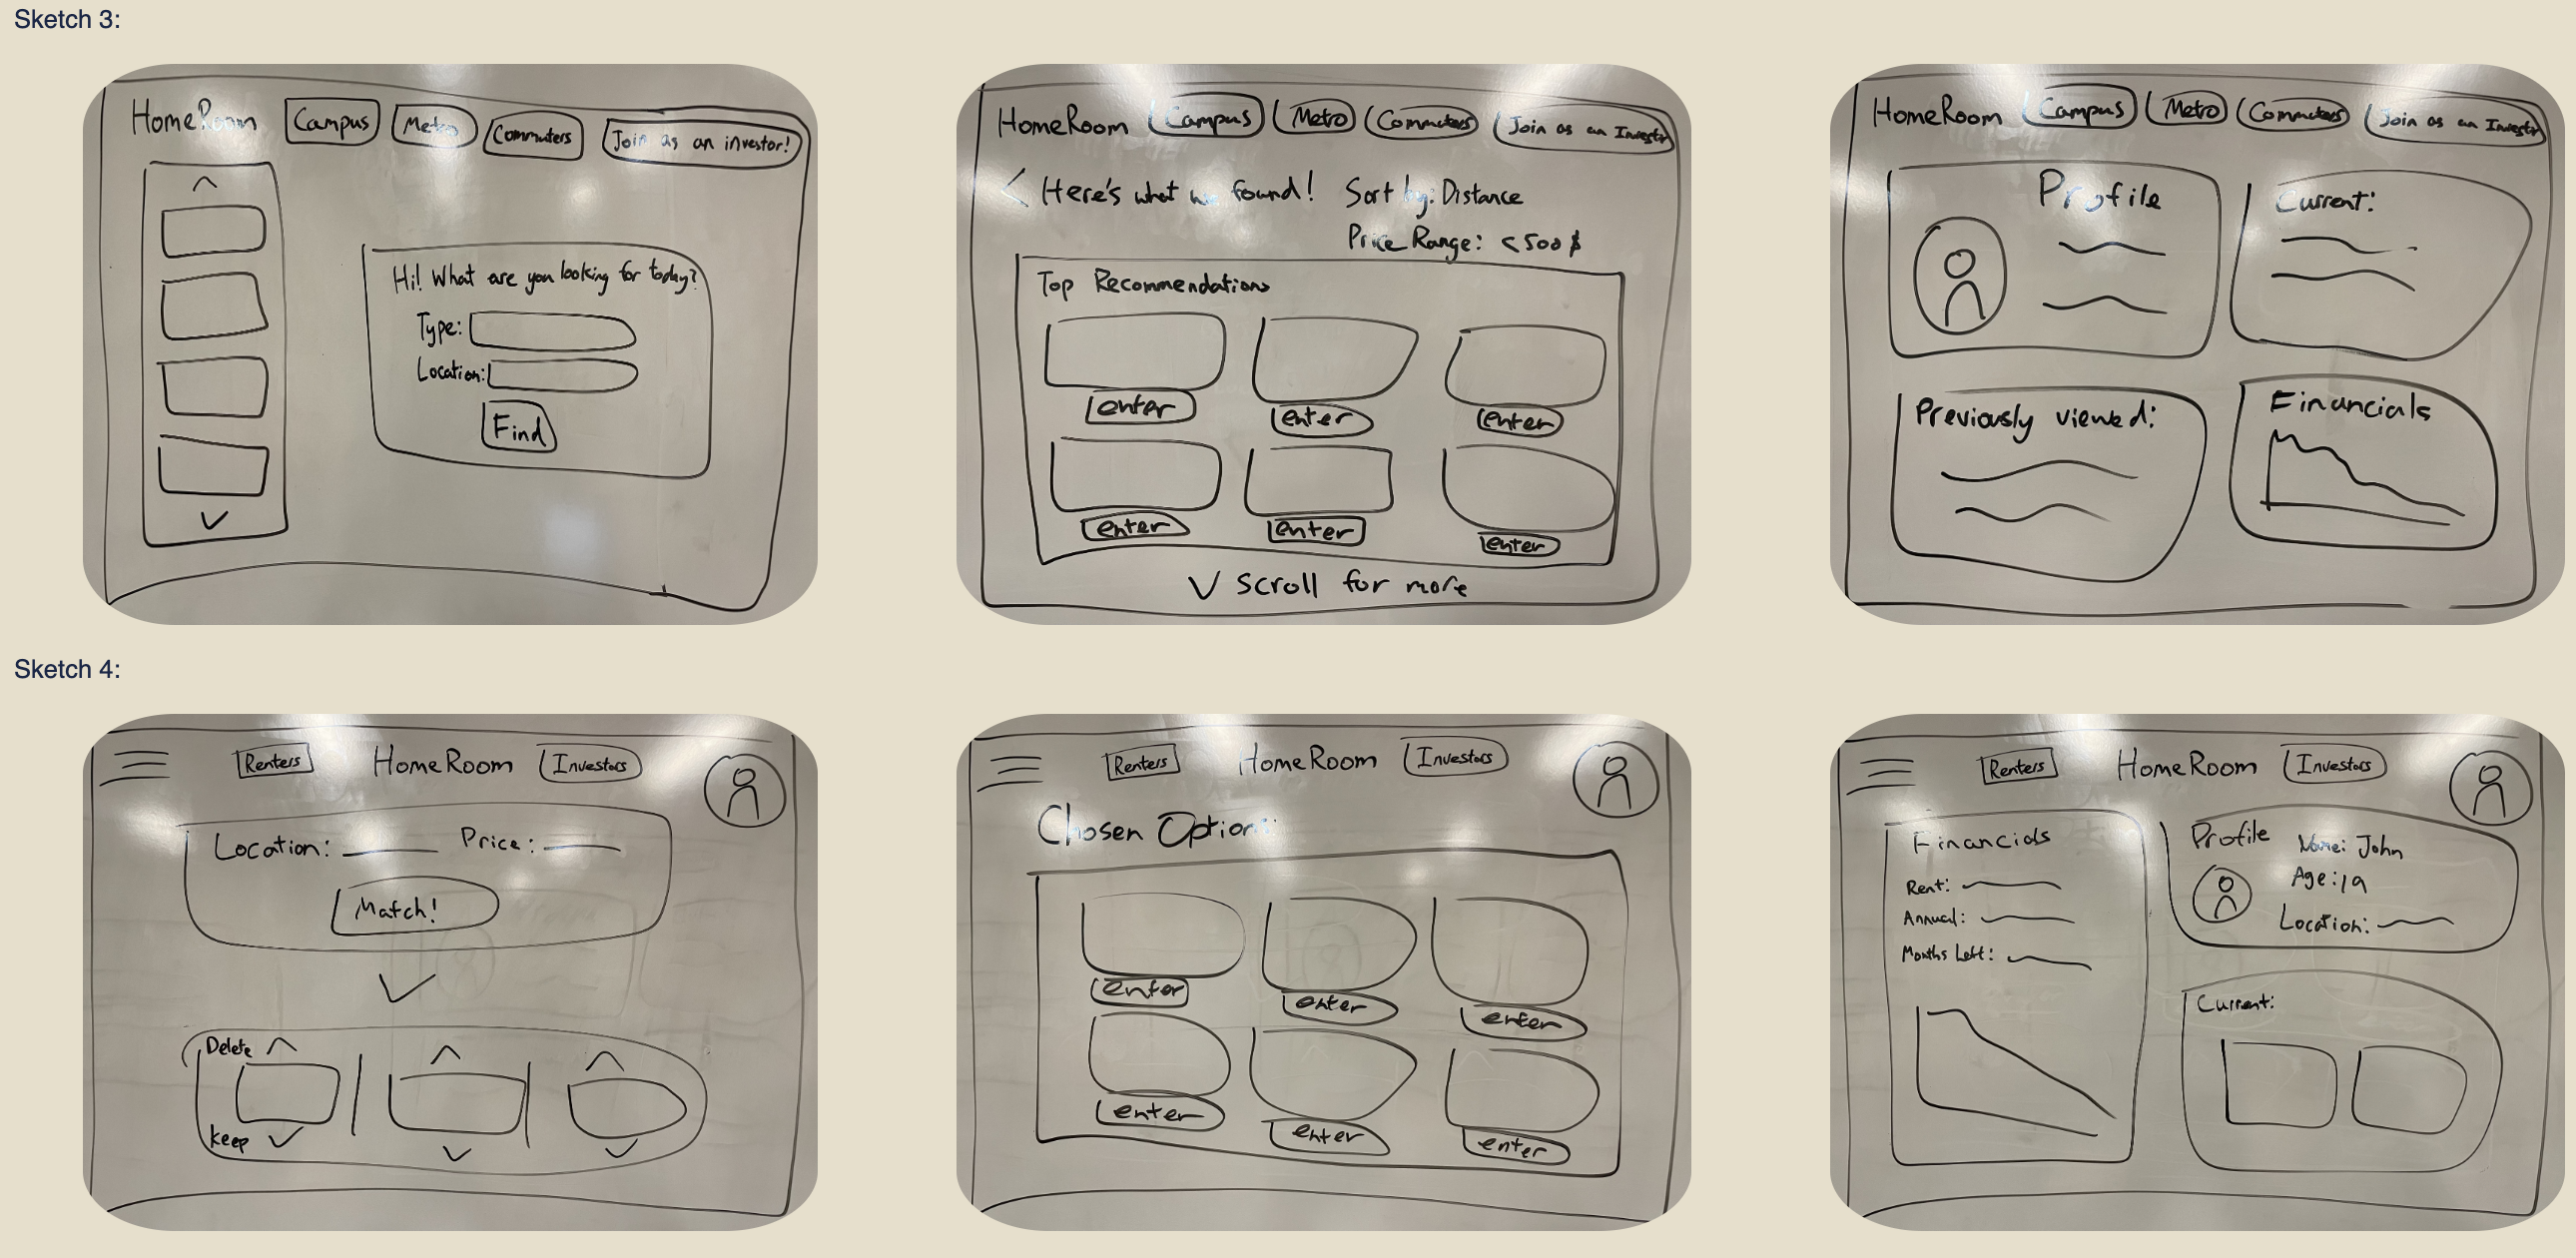 Sketch 3:
HomeRoom Campus Metro Commuters Join as an investor!
Hi! What are you looking for today?
Type:
Location:
Find
HomeRoom Campus Metro Commuters Join as an Investor
< Here's what we found! Sort by: Distance
Price Range: <500$
Top Recommendations
enter enter enter
enter enter enter
Scroll for more
HomeRoom Campus Metro Commuters Join as an Investor
Profile
Current:
Previously viewed:
Financials
Sketch 4:
Renters HomeRoom Investors
Location: Price:
Match!
Delete
Keep
Renters HomeRoom Investors
Chosen Options:
enter enter enter
enter enter enter
Renters HomeRoom Investors
Financials
Rent:
Annual:
Months Left:
Profile Name: John
Age: 19
Location:
Current: